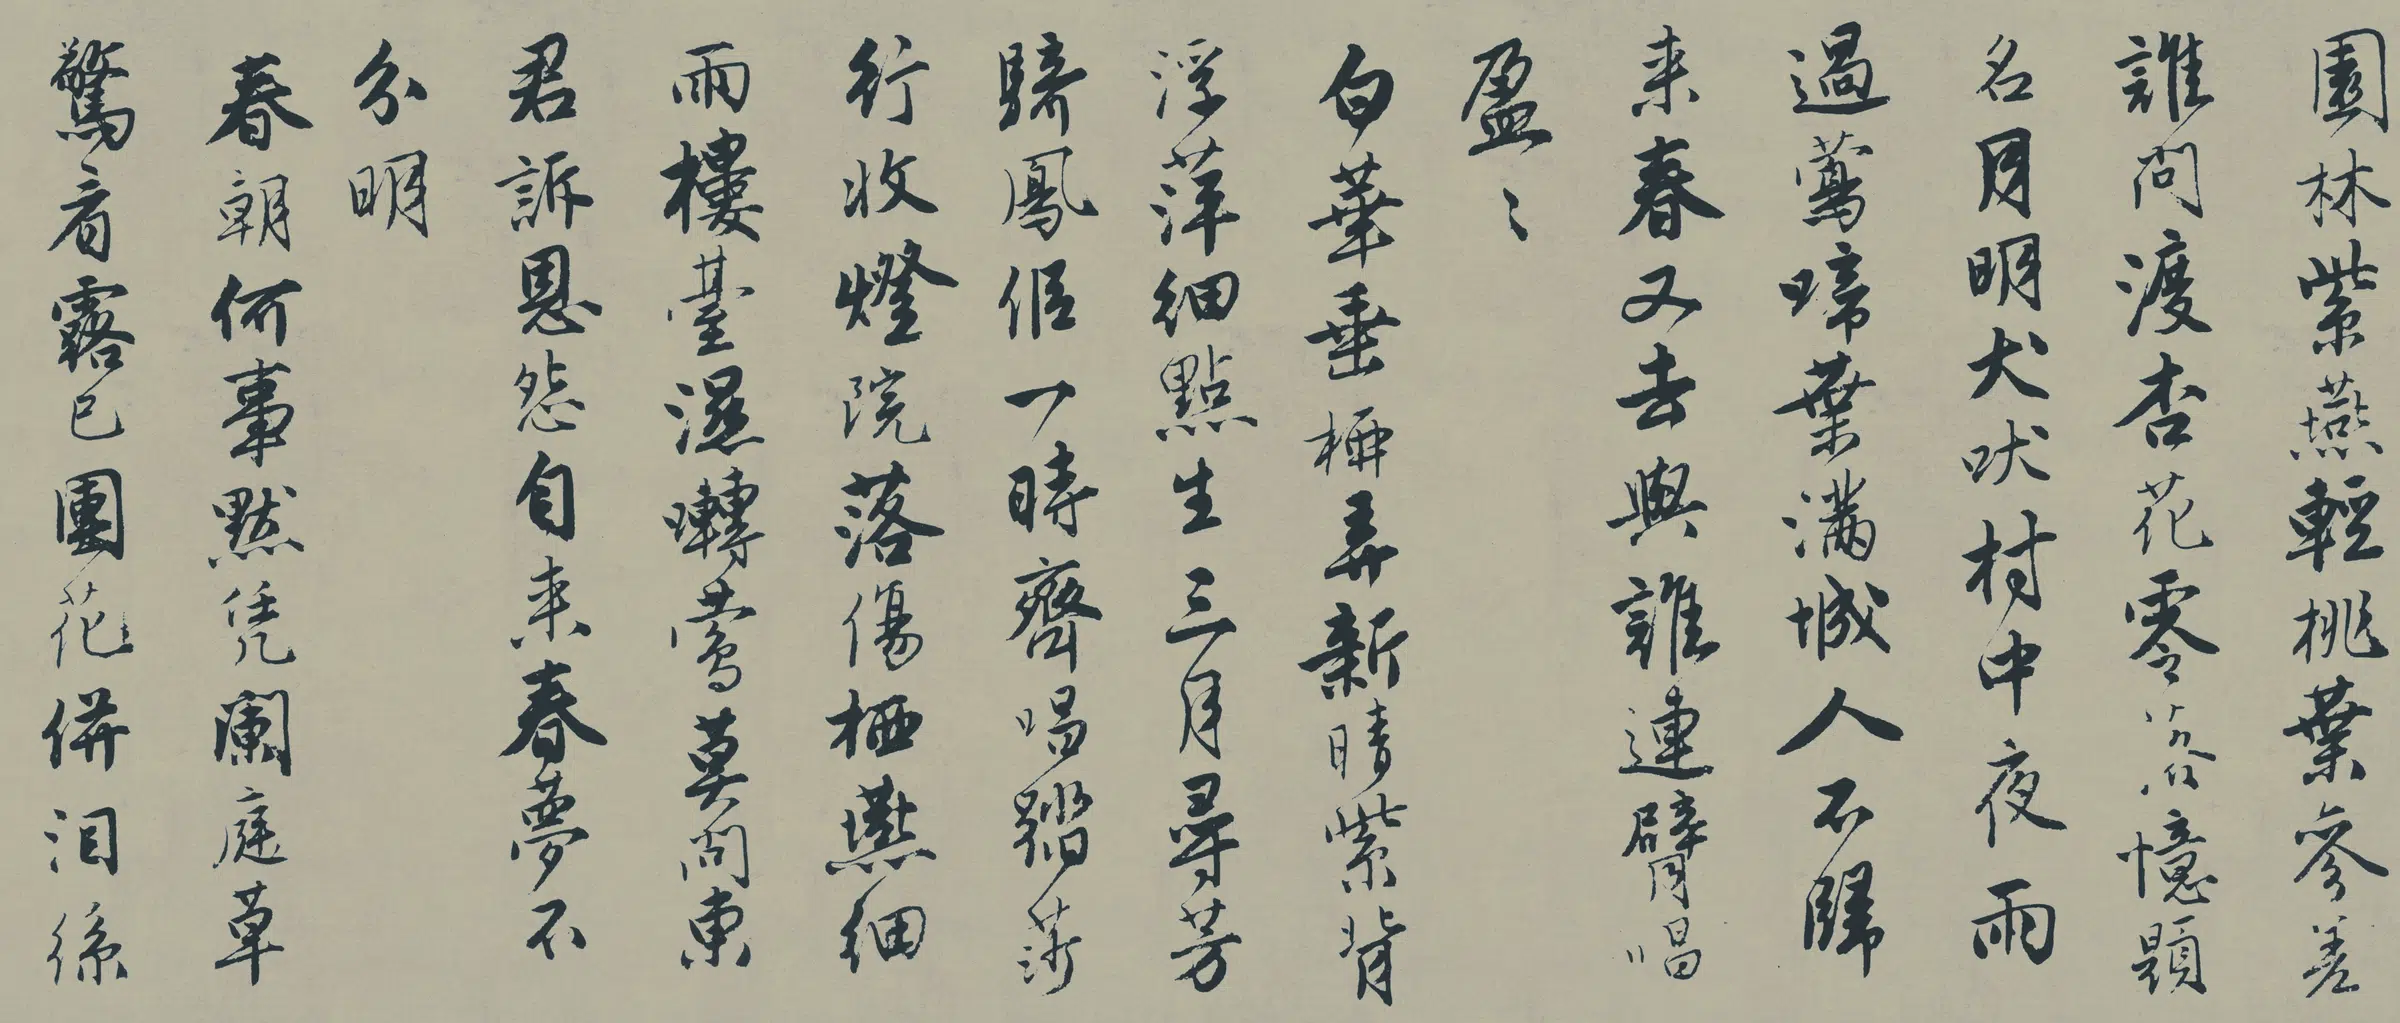 園林紫燕輕桃葉參差
誰問渡杏花零落憶題
名月明犬吠村中夜雨
過鶯啼葉滿城人不歸
來春又去與誰連臂唱
盈〻
白華垂柳弄新晴紫背
浮萍細點生三月尋芳
騎鳳侶一時齊唱踏莎
行收燈院落傷栖燕細
雨樓臺濕囀鶯莫問東
君訴恩怨自來春夢不
分明
春朝何事默凭闌庭草
驚看露已團花併泪